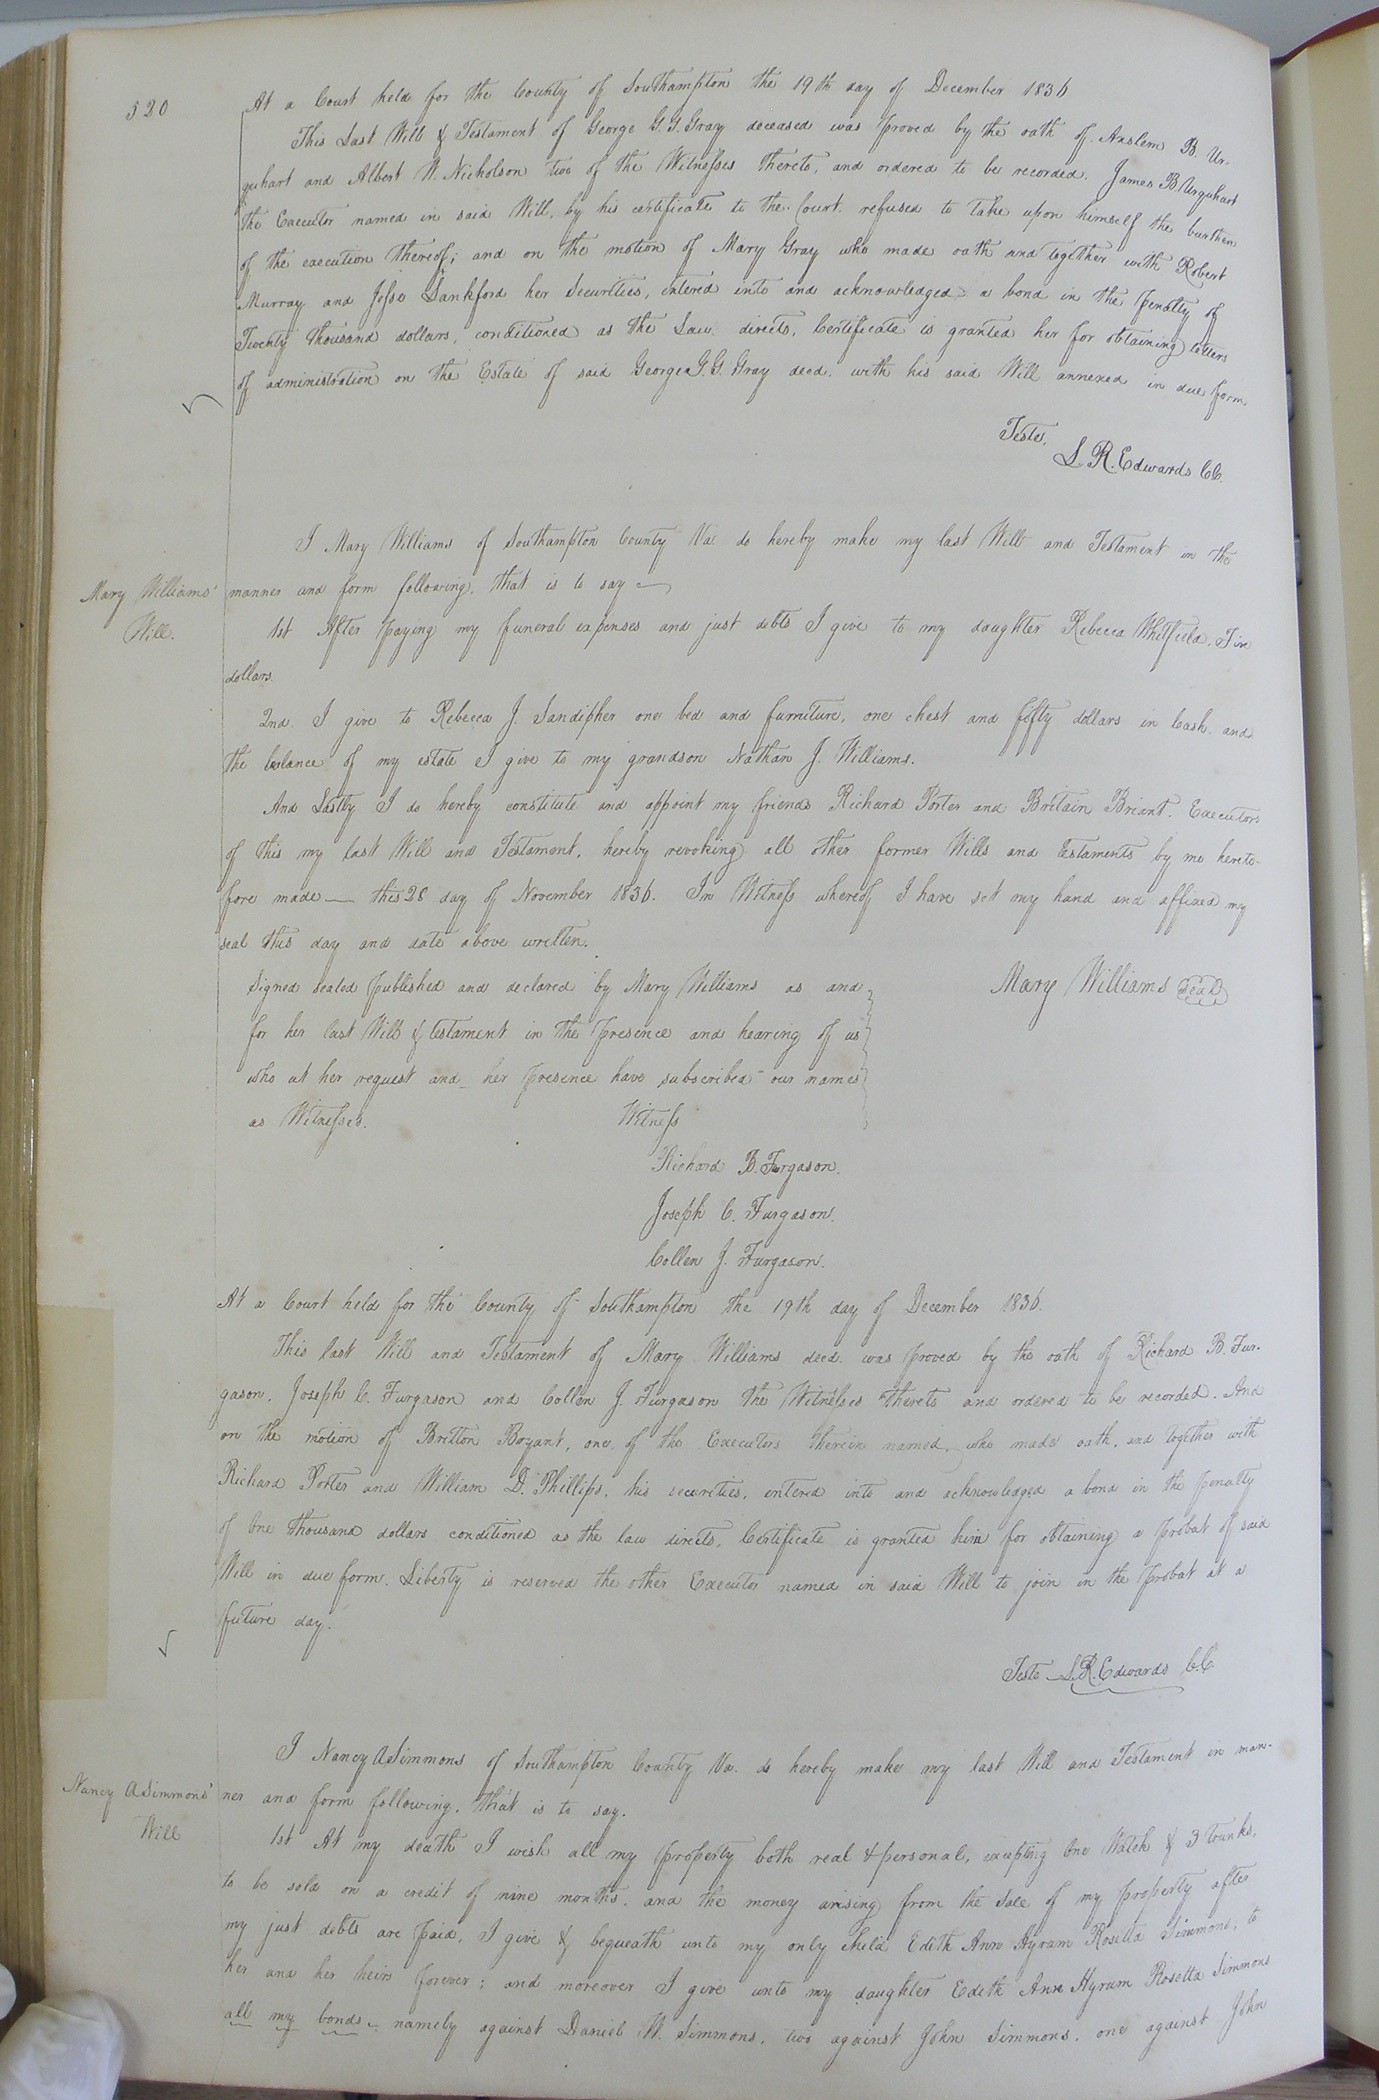 520
At a Court held for the County of Southampton the 19th day of December 1836
This Last Will & Testament of George G. G. Gray deceased was proved by the oath of Anslem B. Ur-
quhart and Albert W. Nicholson two of the Witnesses thereto, and ordered to be recorded. James B Urquhart
the Executor named in said Will, by his certificate to the Court refused to take upon himself the burthen
of the execution thereof; and on the motion of Mary Gray who made oath and together with Robert
Murray and Jesse Lankford her Securities, entered into and acknowledged a bond in the penalty of
Twenty thousand dollars, conditioned as the Law directs, Certificate is granted her for obtaining letters
of administration on the Estate of said George G. G. Gray decd. with his said Will annexed in due form
Teste,
L. R. Edwards CC.
I Mary Williams of Southampton County Va do hereby make my last Will and Testament in the
Mary Williams'
Will.
manner and form following, that is to say
1st After paying my funeral expenses and just debts I give to my daughter Rebecca Whitfield, Five
dollars.
2nd. I give to Rebecca J. Sandipher one bed and furniture, one chest and fifty dollars in Cash and
the balance of my estate I give to my grandson Nathan J. Williams.
And Lastly I do hereby constitute and appoint my friends Richard Porter and Britain Briant, Executors
of this my last Will and Testament, hereby revoking all other former Wills and testaments by me hereto-
fore made — this 28 day of November 1836. In Witness whereof I have set my hand and affixed my
seal this day and date above written.
Mary Williams Seal
Signed sealed published and declared by Mary Williams as and
for her last Will & testament in the presence and hearing of us
who at her request and her presence have subscribed our names
as Witnesses. Witness
Richard B. Furgason.
Joseph C. Furgason.
Collen J. Furgason.
At a Court held for the County of Southampton the 19th day of December 1836.
This last Will and Testament of Mary Williams decd. was proved by the oath of Richard B. Fur-
gason, Joseph C. Furgason and Collen J. Furgason the Witnesses thereto and ordered to be recorded. And
on the motion of Britton Bryant, one of the Executors therein named, who made oath, and together with
Richard Porter and William D. Phillips, his securities, entered into and acknowledged a bond in the penalty
of One thousand dollars conditioned as the law directs, Certificate is granted him for obtaining a probat of said
Will in due form. Liberty is reserved the other Executor named in said Will to join in the Probat at a
future day.
Teste L. R. Edwards C.C.
I Nancy A Simmons of Southampton County Va. do hereby make my last Will and Testament in man-
Nancy A Simmons'
Will
ner and form following, that is to say.
1st At my death I wish all my property both real & personal, excepting One Watch & 3 trunks,
to be sold on a credit of nine months, and the money arising from the Sale of my property after
my just debts are paid, I give & bequeath unto my only child Edith Ann Hyram Rosetta Simmons, to
her and her heirs forever; and moreover I give unto my daughter Edith Ann Hyram Rosetta Simmons
all my bonds, namely against Daniel W. Simmons, two against John Simmons, one against John